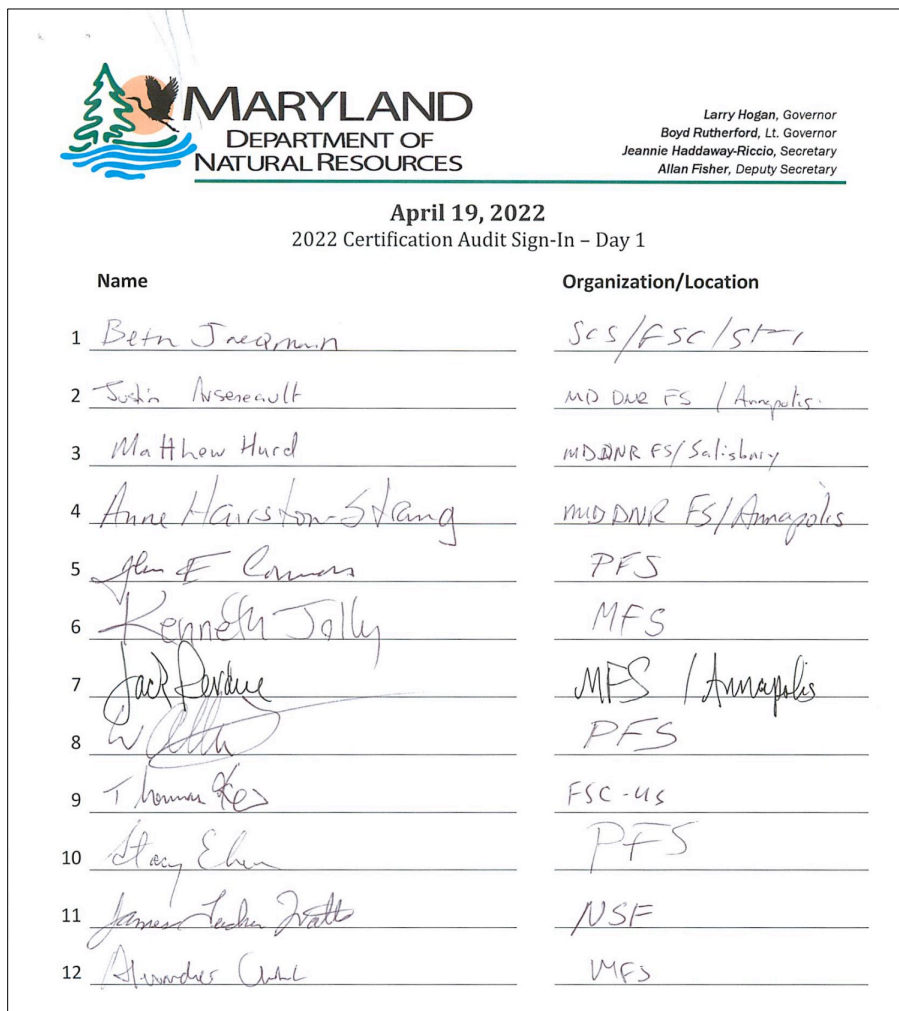 MARYLAND
DEPARTMENT OF
NATURAL RESOURCES
Larry Hogan, Governor
Boyd Rutherford, Lt. Governor
Jeannie Haddaway-Riccio, Secretary
Allan Fisher, Deputy Secretary
April 19, 2022
2022 Certification Audit Sign-In – Day 1
Name Organization/Location
1 Beth SCS/FSC/
2 Justin Arseneault MD DNR FS / Annapolis
3 Matthew Hurd MD DNR FS/Salisbury
4 Anne Hairston-Strang MD DNR FS/Annapolis
5 PFS
6 Kenneth Jolly MFS
7 Jack Perdue MFS / Annapolis
8 PFS
9 Thomas FSC-US
10 Stacy PFS
11 James Watts NSF
12 MFS